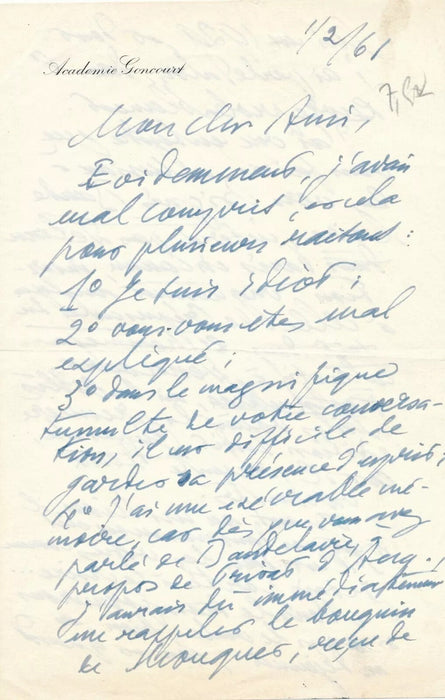 1/2/61
Académie Goncourt
Mon cher Ami,
Evidemment, j'avais
mal compris, et cela
pour plusieurs raisons :
1º Je suis idiot ;
2º vous vous êtes mal
expliqué ;
3º dans le magnifique
tumulte de votre conversa-
tion, il est difficile de
garder sa présence d'esprit ;
4º J'ai une exécrable mé-
moire, car dès que vous avez
parlé de Baudelaire à
propos de Privat d'Ang.,
j'aurais dû immédiatement
me rappeler le bouquin
de Mouquet, reçu de